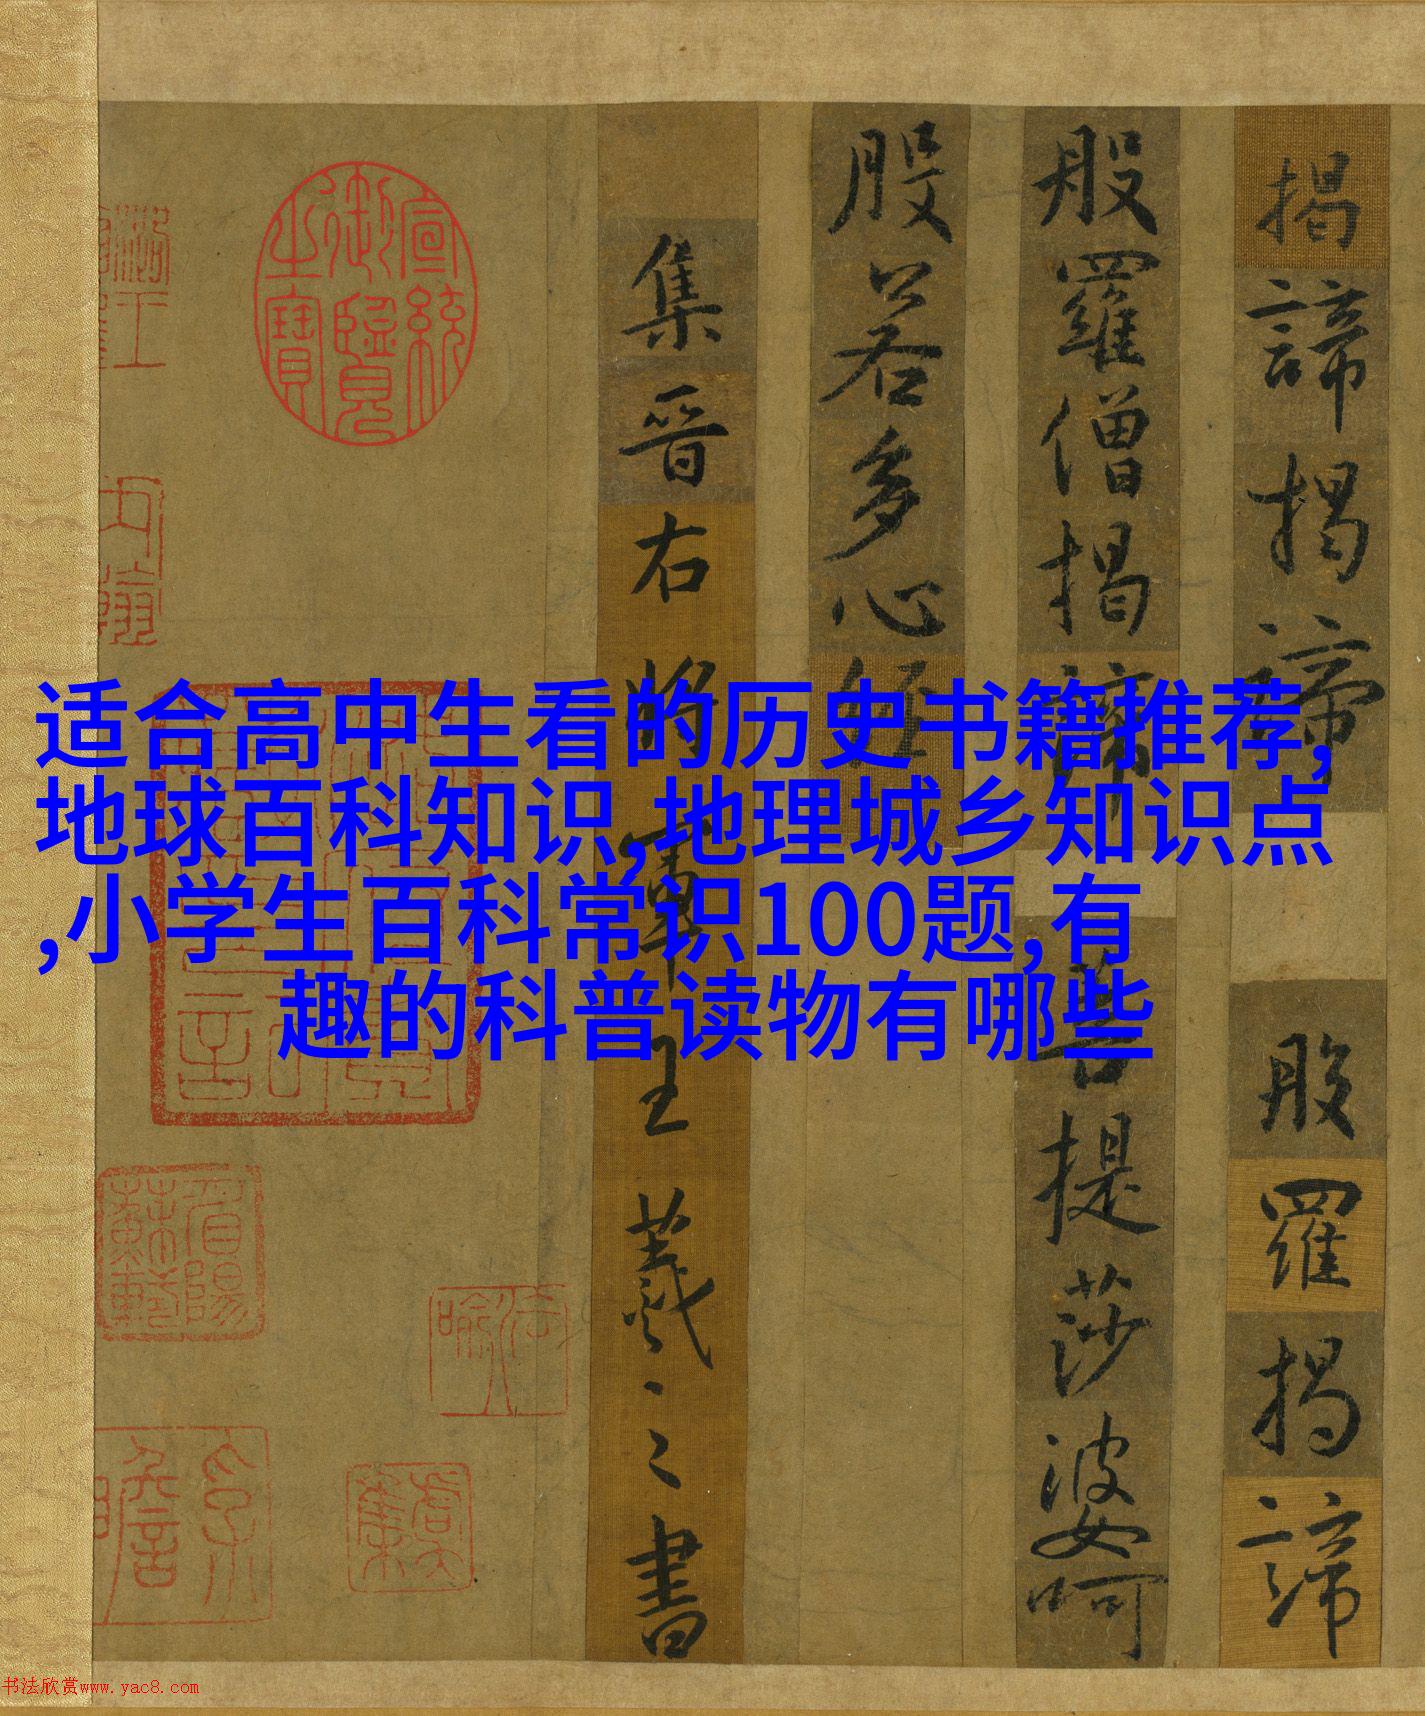 揭諦揭諦般羅揭諦
般羅僧揭諦菩提莎婆呵
般若多心經
集晉右將軍王羲之書
宣統御覽之寶
适合高中生看的历史书籍推荐,
地球百科知识,地理城乡知识点
,小学生百科常识100题,有
趣的科普读物有哪些
书法欣赏www.yac8.com